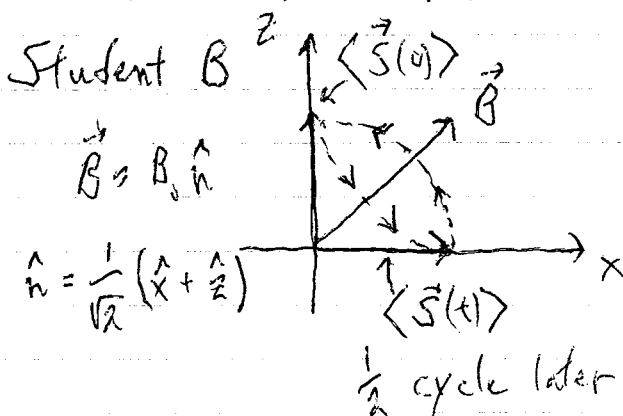 Student B
z
⟨S⃗(0)⟩
B⃗
B⃗ = B₀ n̂
n̂ = 1/√2 (x̂ + ẑ)
x
⟨S⃗(t)⟩
1/2 cycle later